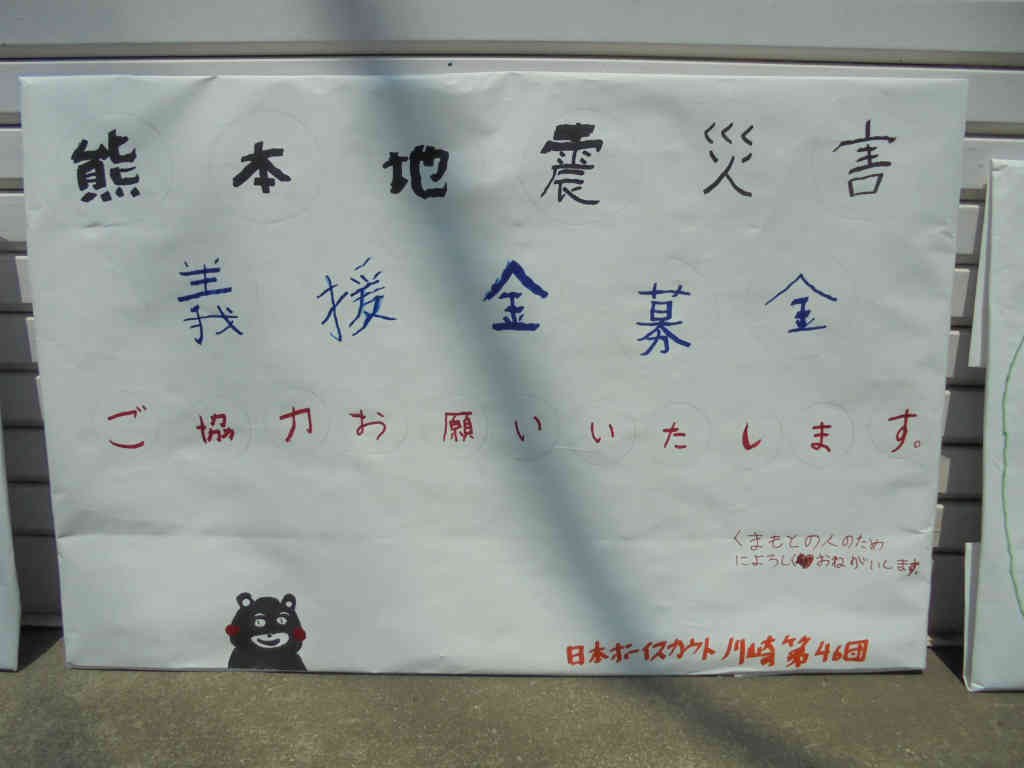 熊本地震災害
義援金募金
ご協力お願いいたします。
くまもとの人のため
によろしく♥おねがいします。
日本ボーイスカウト川崎第46団